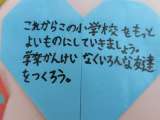 これからこの小学校をもっと
よいものにしていきましょう。
学年かんけいなくいろんな友達
をつくろう。